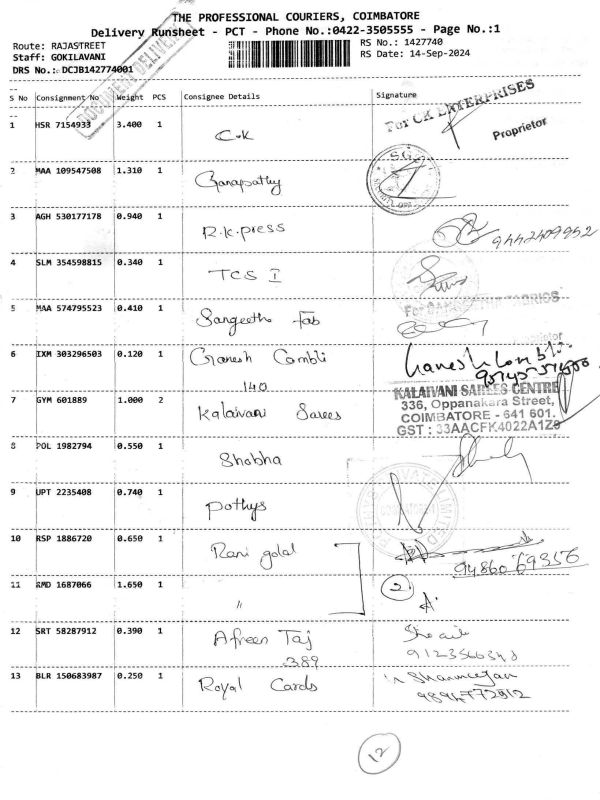 THE PROFESSIONAL COURIERS, COIMBATORE
Delivery Runsheet - PCT - Phone No.:0422-3505555 - Page No.:1
Route: RAJASTREET
RS No.: 1427740
Staff: GOKILAVANI
RS Date: 14-Sep-2024
DRS No.: DCJB142774001
DOCUMENT DELIVERY
S No Consignment No Weight PCS Consignee Details Signature
1 HSR 7154933 3.400 1 C.K
For CK ENTERPRISES
Proprietor
2 MAA 109547508 1.310 1 Ganapathy
S.G
3 AGH 530177178 0.940 1 R.K.press
9442409952
4 SLM 354598815 0.340 1 TCS I
5 MAA 574795523 0.410 1 Sangeetha Fab
For FABRICS
6 IXM 303296503 0.120 1 Ganesh Cambli
140
Ganesh Cambli
7 GYM 601889 1.000 2 Kalaivani Sarees
KALAIVANI SAREES CENTRE
336, Oppanakara Street,
COIMBATORE - 641 601.
GST : 33AACFK4022A1Z9
8 POL 1982794 0.550 1 Shobha
9 UPT 2235408 0.740 1 Pothys
PRIVATE LIMITED
10 RSP 1886720 0.650 1 Rani golal
9486069356
11 RMD 1687066 1.650 1 "
2
12 SRT 58287912 0.390 1 Afreen Taj
389
13 BLR 150683987 0.250 1 Royal Cards
12